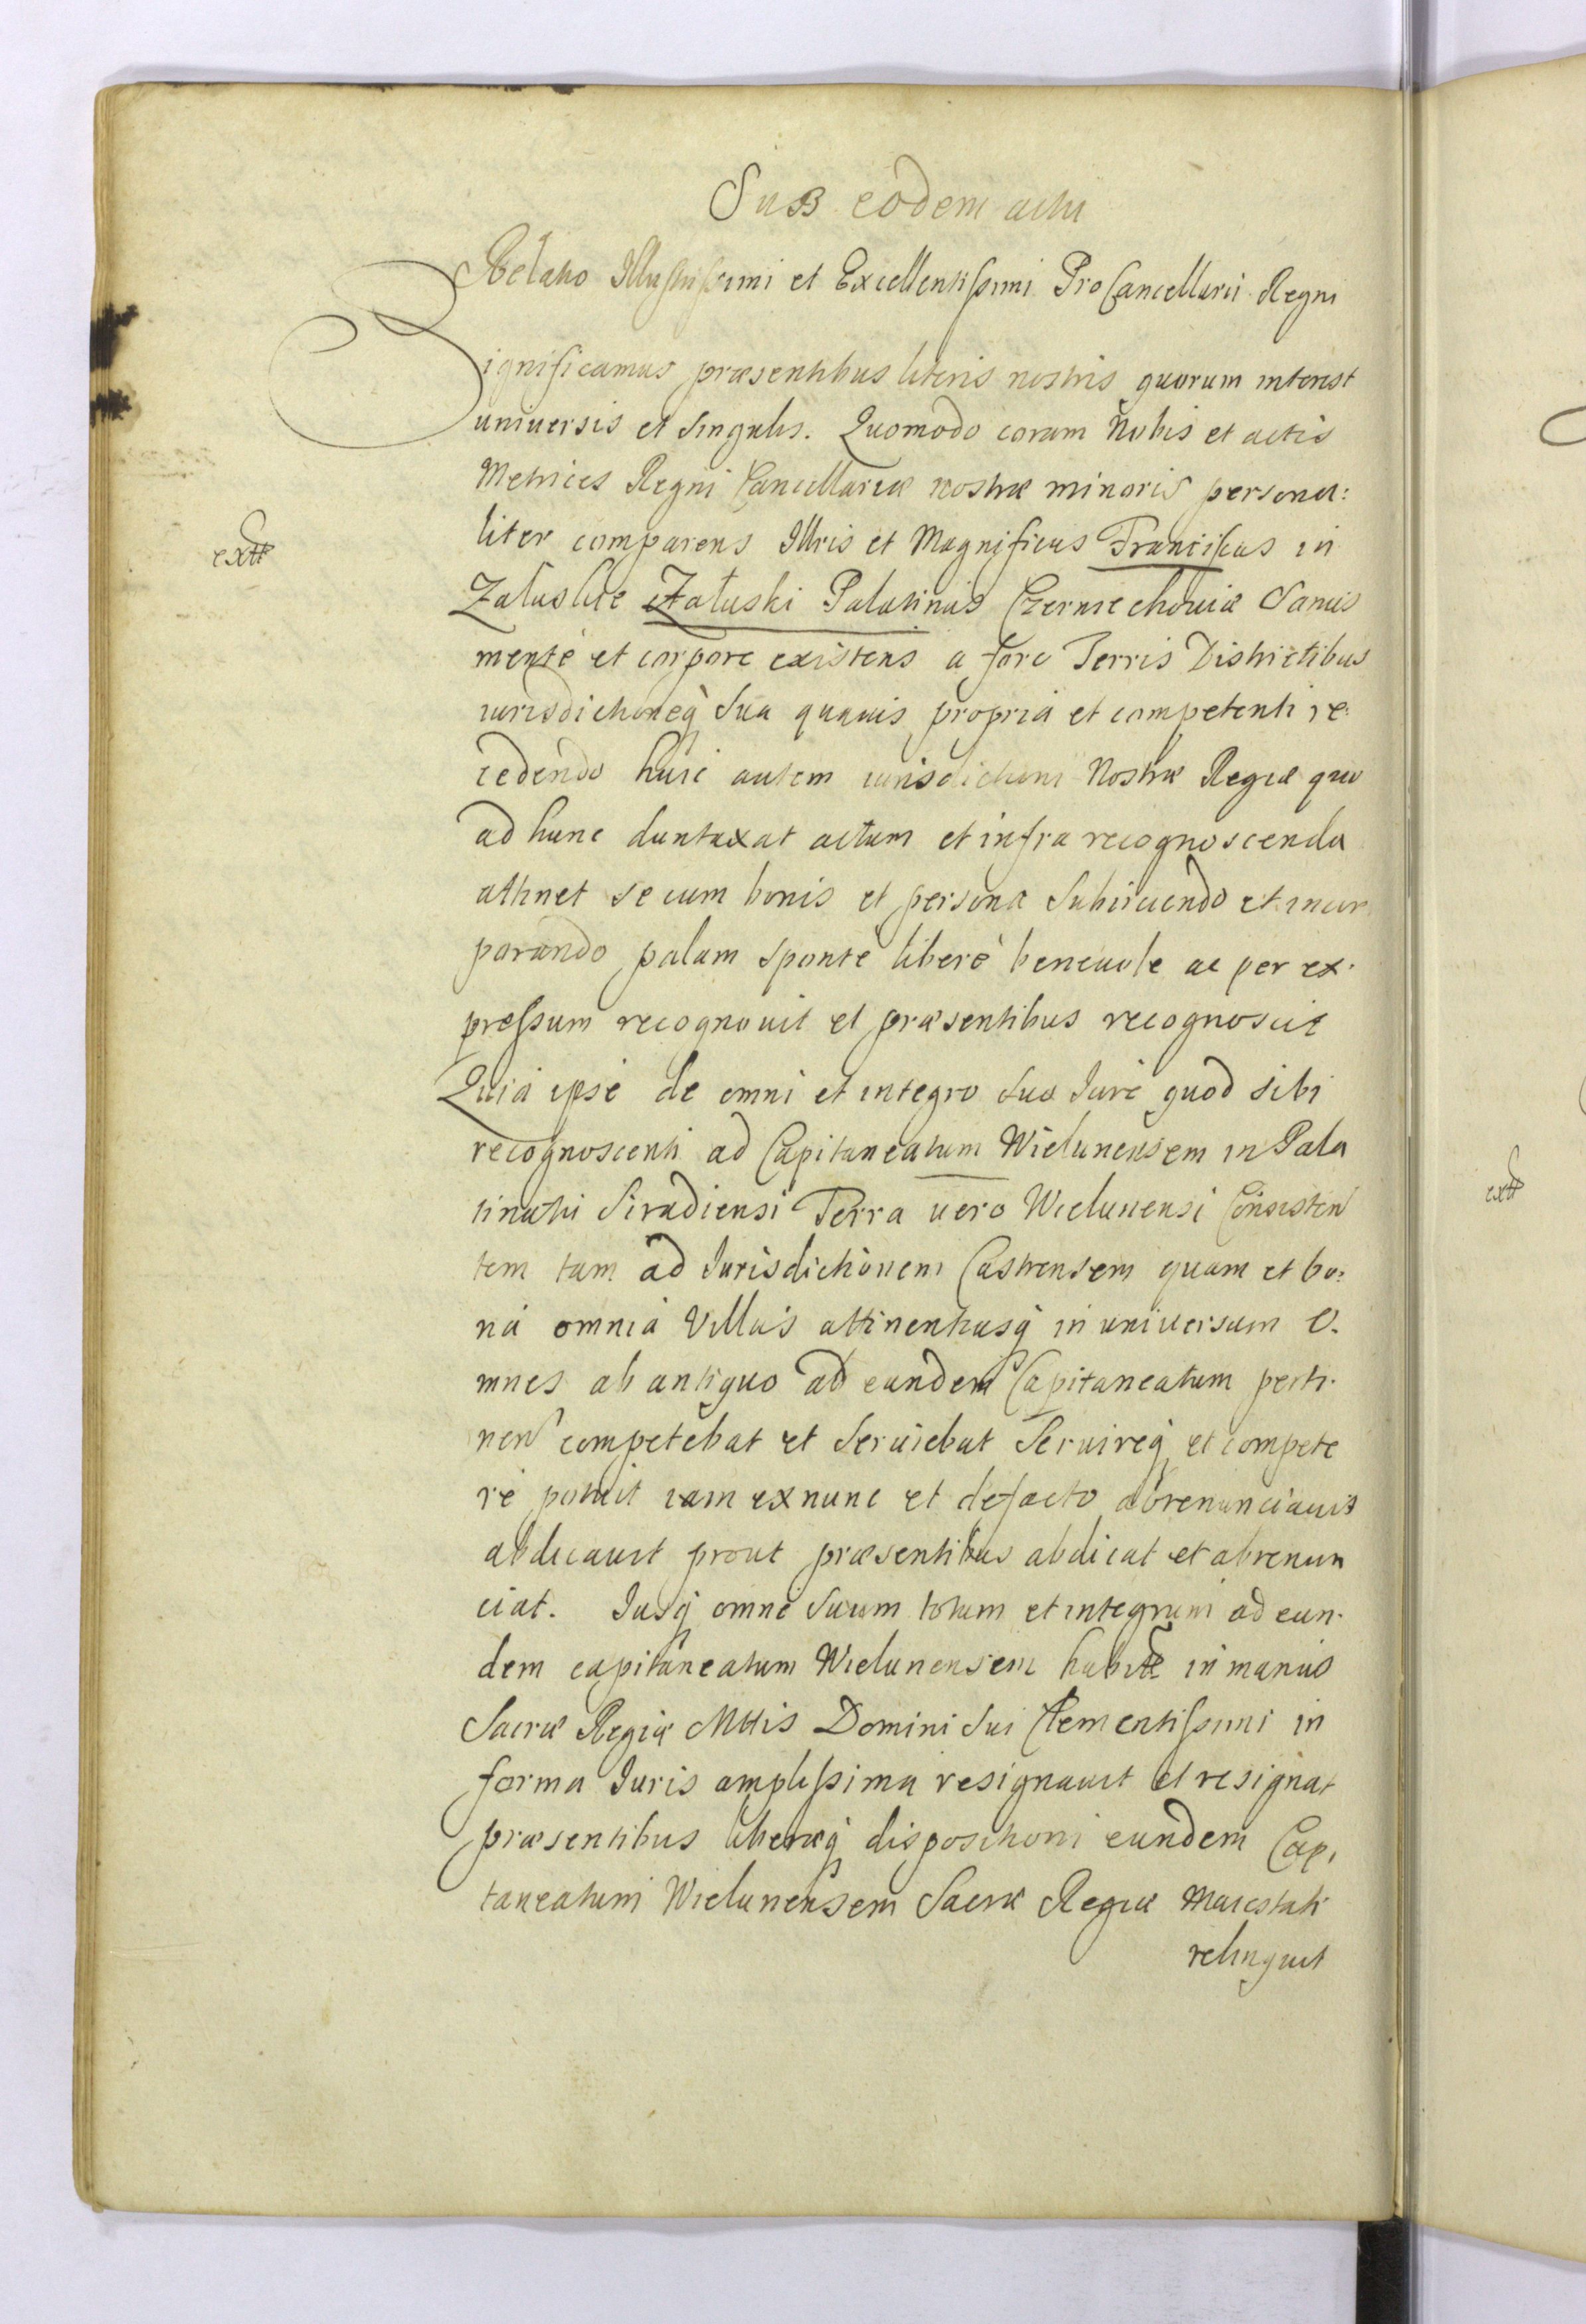 Sub eodem actu
Relatio Illustrissimi et Excellentissimi ProCancellarii Regni
Significamus præsentibus literis nostris quorum interest
universis et singulis. Quomodo coram Nobis et actis
Metrices Regni Cancellariæ nostræ minoris persona:
liter comparens Illris et Magnificus Franciscus in
extt
Załuskie Załuski Palatinus Czerniechoviæ Sanus
mente et corpore existens a foro Terris Districtibus
iurisdictioneq sua quavis propria et competenti re:
cedendo huic autem iurisdictioni Nostræ Regiæ quo
ad hunc duntaxat actum et infra recognoscenda
attinet se cum bonis et persona subiiciendo et incor
porando palam sponte liberè benevole ac per ex.
pressum recognovit et præsentibus recognoscit
Quia ipse de omni et integro suo Iure quod sibi
recognoscenti ad Capitaneatum Wielunensem in Pala
tinatu Siradiensi Terra vero Wielunensi Consisten
tem tam ad Iurisdictionem Castrensem quam et bo:
na omnia Villas attinentiasq in universum O.
mnes ab antiquo ad eundem Capitaneatum perti.
nen competebat et serviebat servireq et compete
re potuit iam exnunc et defacto abrenunciavit
abdicavit prout præsentibus abdicat et abrenun
ciat. Iusq omne suum totum et integrum ad eun.
dem capitaneatum Wielunensem habitt in manus
Sacræ Regiæ Mttis Domini sui Clementissimi in
forma Iuris amplissima resignavit et resignat
præsentibus liberæq dispositioni eundem Capi
taneatum Wielunensem Sacræ Regiæ Maiestati
relinquit
extt